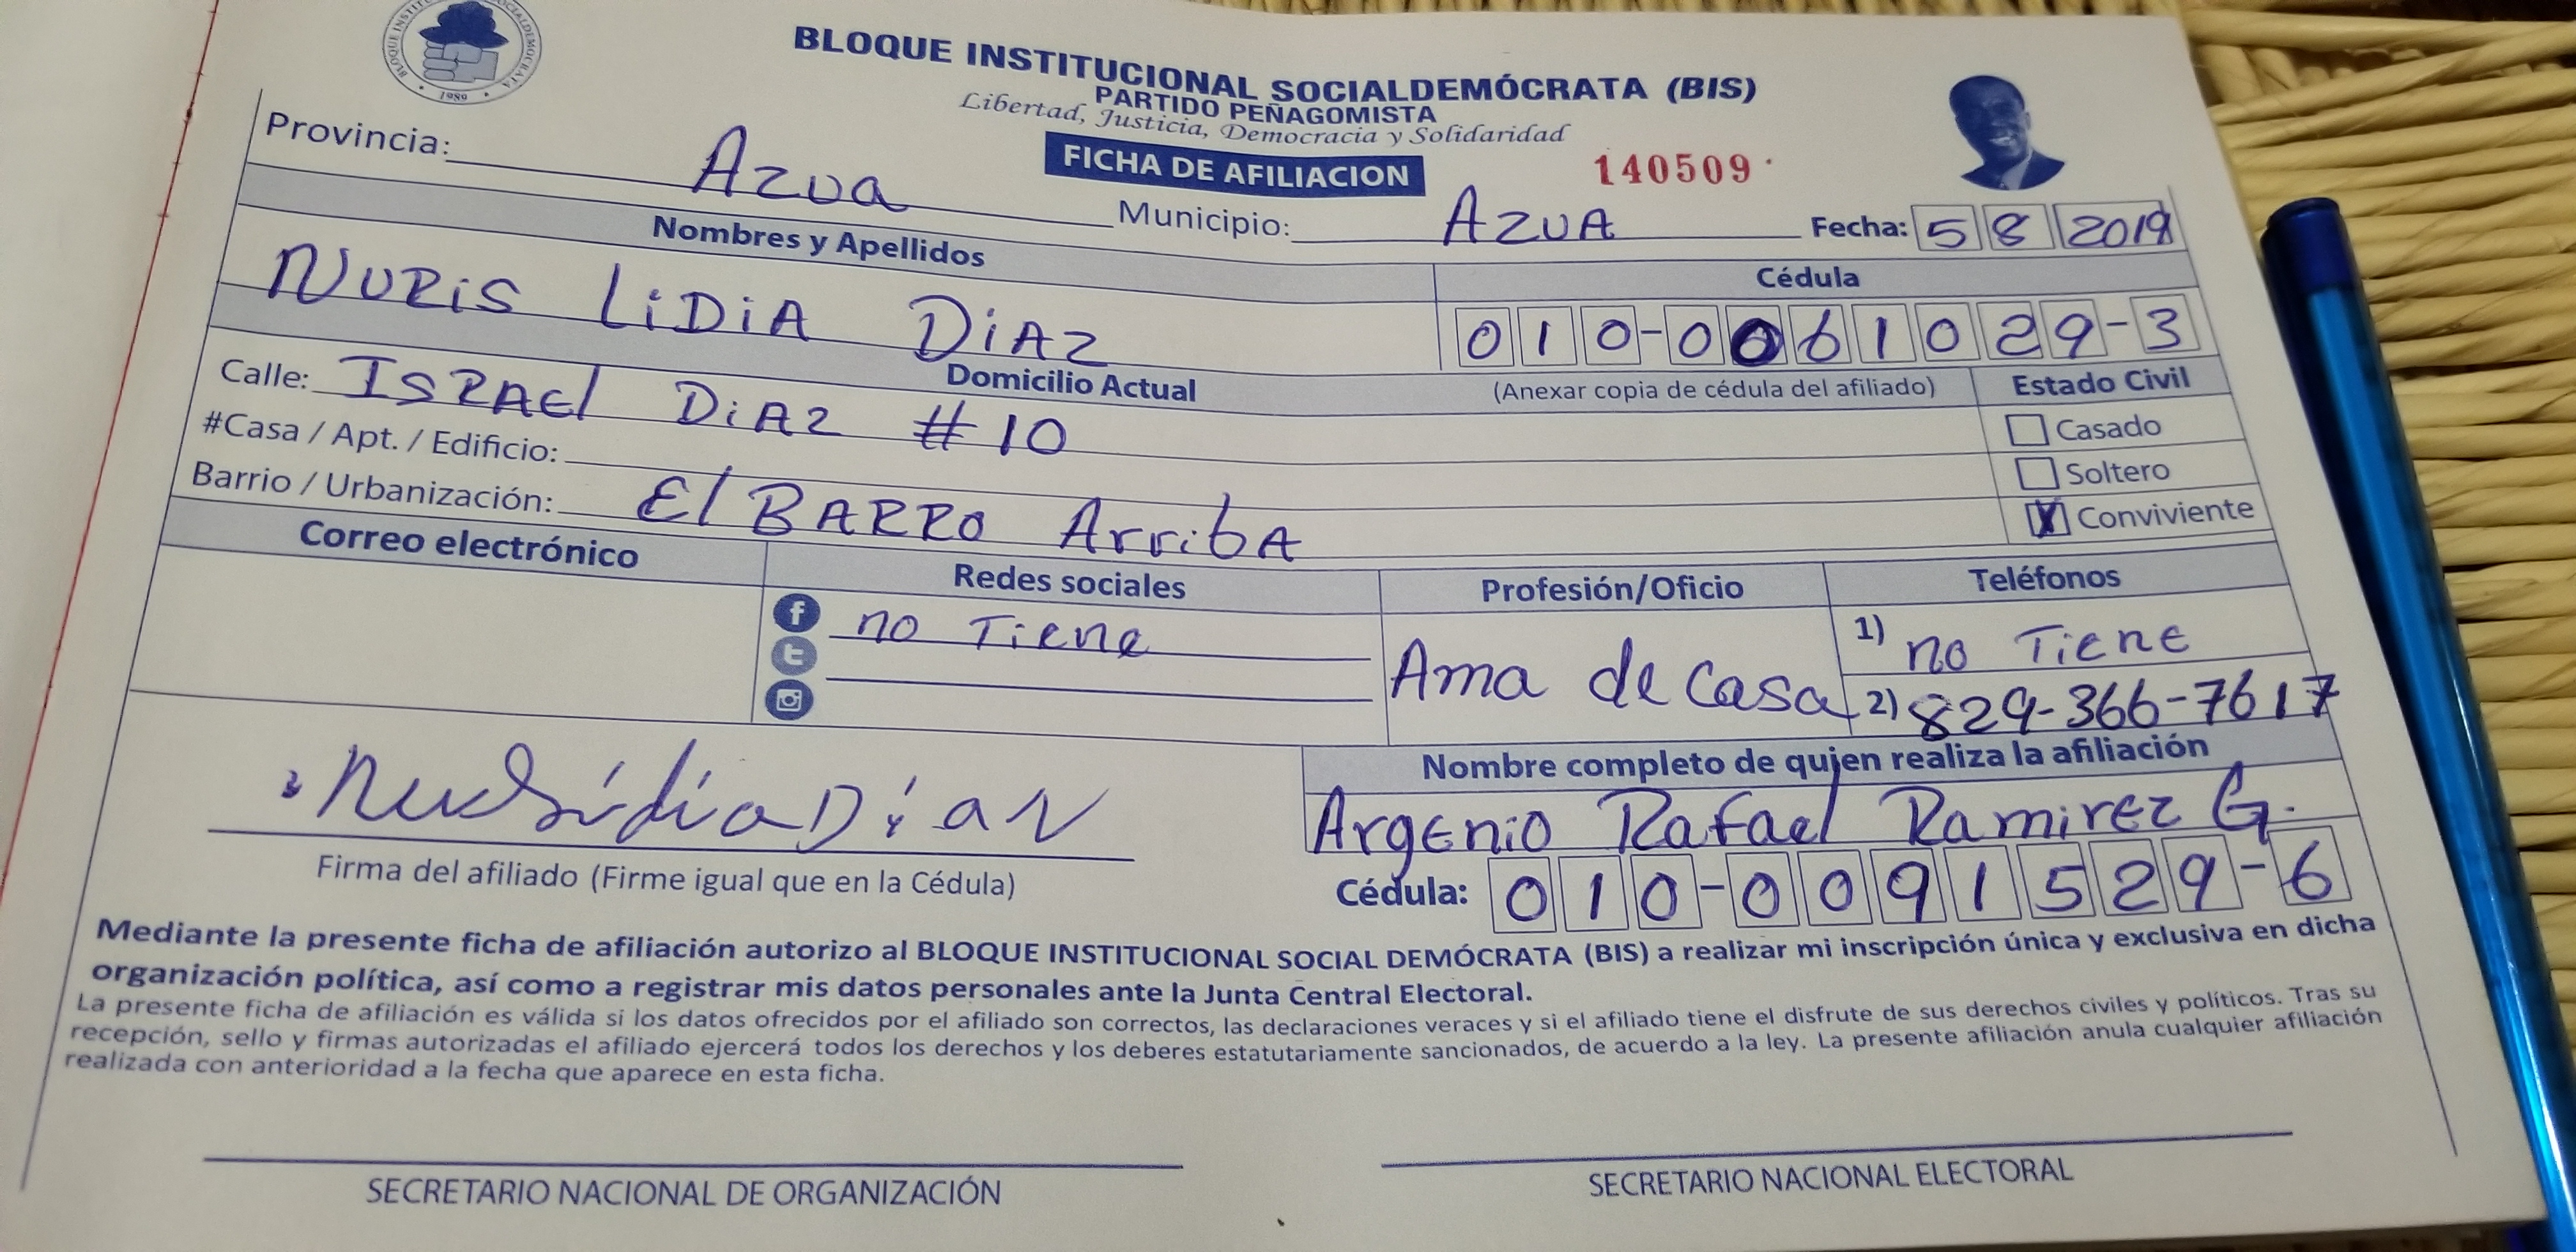 BLOQUE INSTITUCIONAL SOCIALDEMÓCRATA (BIS)
PARTIDO PEÑAGOMISTA
Libertad, Justicia, Democracia y Solidaridad
FICHA DE AFILIACION
140509
1989
Provincia: Azua
Municipio: AZUA
Fecha: 5 8 2019
Nombres y Apellidos
NURIS LIDIA DIAZ
Cédula
010-0061029-3
(Anexar copia de cédula del afiliado)
Domicilio Actual
Calle: ISRAEl DIAZ #10
#Casa / Apt. / Edificio:
Barrio / Urbanización: El BARRO ArribA
Estado Civil
Casado
Soltero
X Conviviente
Correo electrónico
Redes sociales
no Tiene
Profesión/Oficio
Ama de casa
Teléfonos
1) no TiENE
2) 829-366-7617
Firma del afiliado (Firme igual que en la Cédula)
Nombre completo de quien realiza la afiliación
ArgEnio Rafael Ramirez G.
Cédula: 010-0091529-6
Mediante la presente ficha de afiliación autorizo al BLOQUE INSTITUCIONAL SOCIAL DEMÓCRATA (BIS) a realizar mi inscripción única y exclusiva en dicha
organización política, así como a registrar mis datos personales ante la Junta Central Electoral.
La presente ficha de afiliación es válida si los datos ofrecidos por el afiliado son correctos, las declaraciones veraces y si el afiliado tiene el disfrute de sus derechos civiles y políticos. Tras su
recepción, sello y firmas autorizadas el afiliado ejercerá todos los derechos y los deberes estatutariamente sancionados, de acuerdo a la ley. La presente afiliación anula cualquier afiliación
realizada con anterioridad a la fecha que aparece en esta ficha.
SECRETARIO NACIONAL DE ORGANIZACIÓN
SECRETARIO NACIONAL ELECTORAL